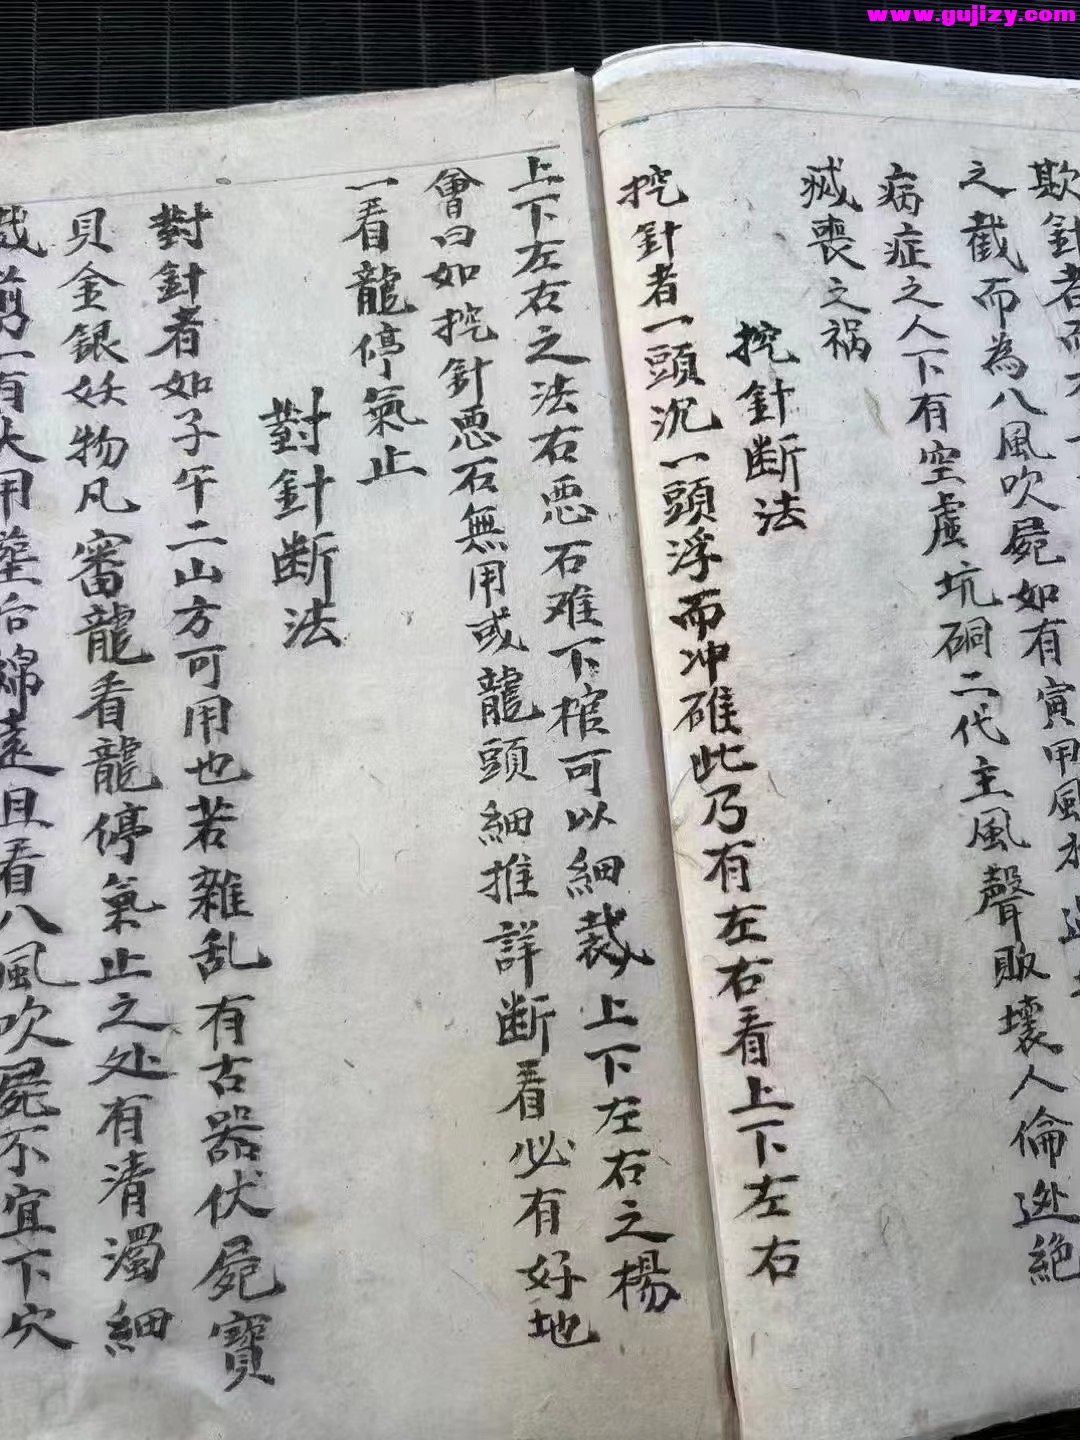 www.gujizy.com
欺針者而不
之截而為八風吹屍如有寅甲風水
病症之人下有空虛坑硐二代主風聲敗壞人倫逃絕
滅喪之禍
挖針斷法
挖針者一頭沉一頭浮而冲碓此乃有左右看上下左右
上下左右之法右惡石难下棺可以細裁上下左右之楊
會曰如挖針惡石無用或龍頭細推詳斷看必有好地
一看龍停氣止
對針斷法
對針者如子午二山方可用也若雜乱有古器伏屍寶
貝金銀妖物凡審龍看龍停氣止之处有清濁細
裁剪一有大用塟后綿遠且看八風吹屍不宜下穴